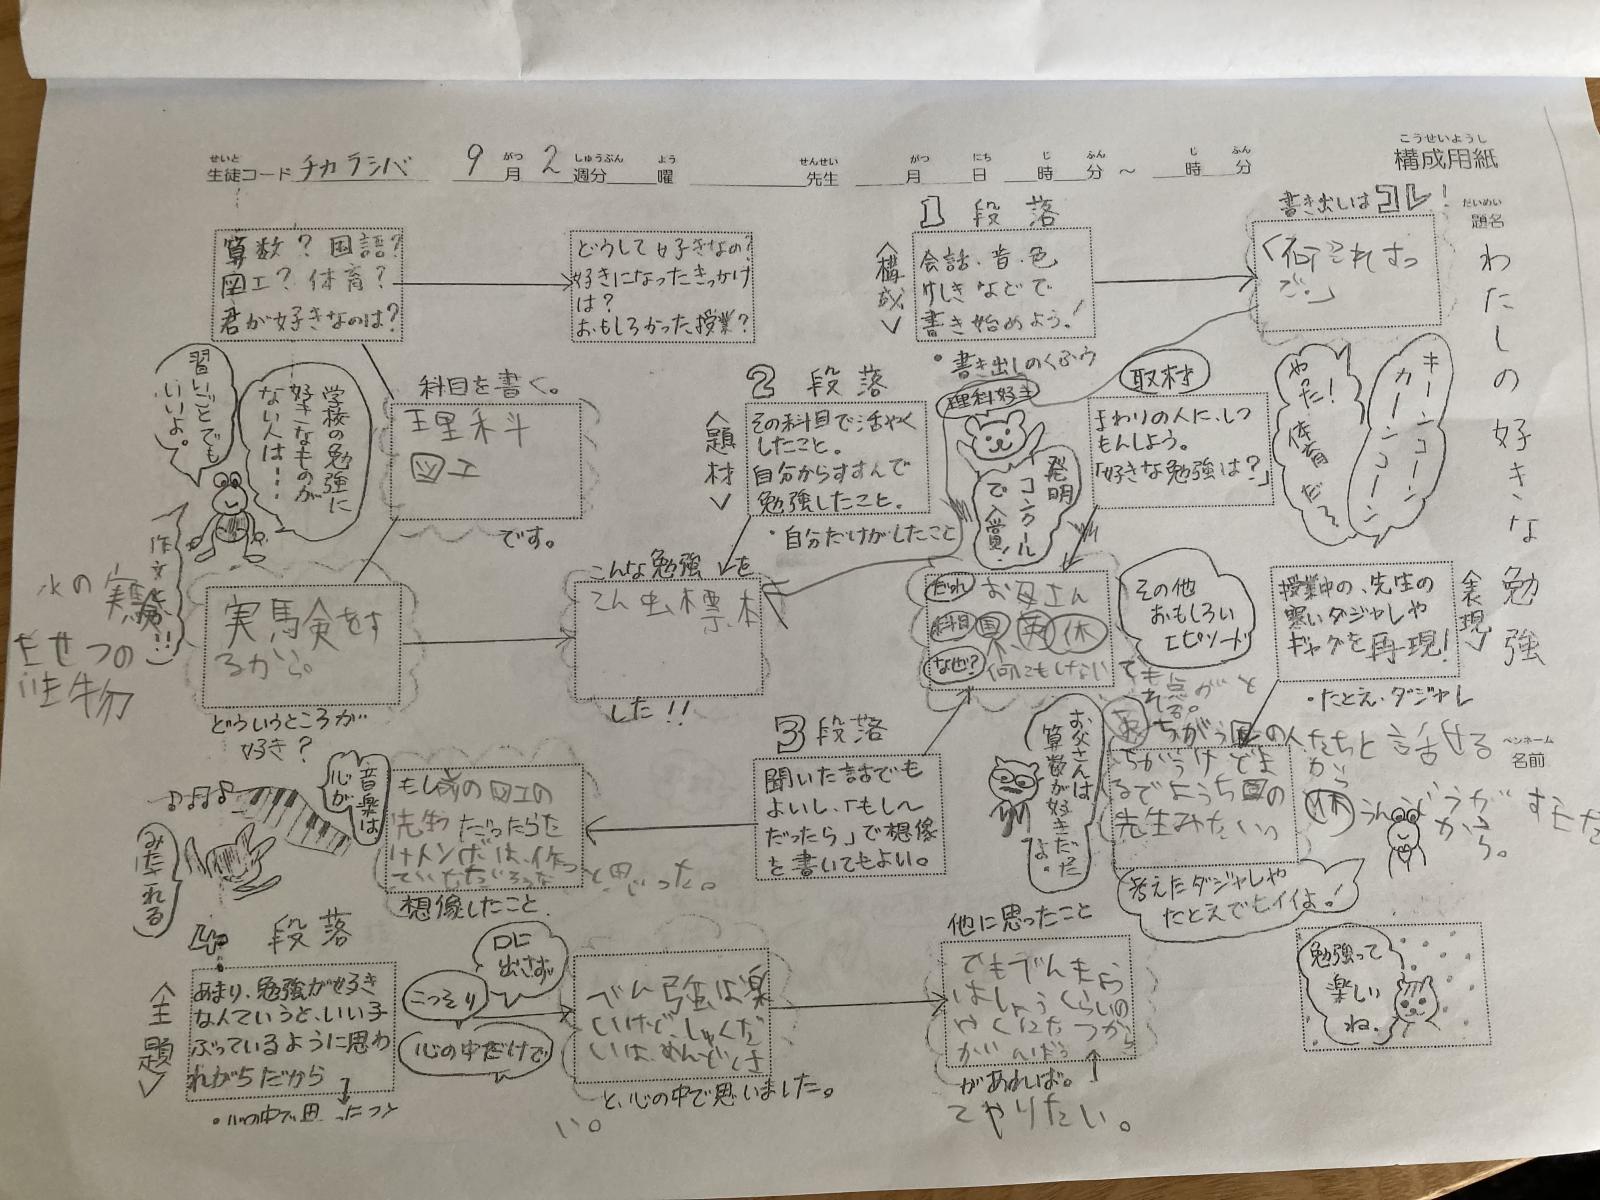 こうせいようし
構成用紙
せいと
生徒コード チカラシバ 9月 2週分 曜 先生 月 日 時 分 ～ 時 分
がつ しゅうぶん よう せんせい がつ にち じ ふん じ ふん
だいめい
題名
わたしの好きな勉強
ペンネーム
名前
算数？国語？
図工？体育？
君が好きなのは？
どうして好きなの？
好きになったきっかけ
は？
おもしろかった授業？
1段落
＜構成＞
会話・音・色
けしきなどで
書き始めよう！
・書き出しのくふう
書き出しはコレ！
「何それすっ
で。」
キーンコーン
カーンコーン
やった！
体育だ〜
習いごとでも
いいよ。
学校の勉強に
好きなものが
ない人は・・・
科目を書く。
理科
図工
です。
2段落
＜題材＞
その科目で活やく
したこと。
自分からすすんで
勉強したこと。
・自分だけがしたこと
理科好き
発明
コンクール
で入賞！
取材
まわりの人に、しつ
もんしよう。
「好きな勉強は？」
水の実験
作文とか！！
実験をす
るから。
どういうところが
好き？
こんな勉強を
こん虫標本
した！！
だれ お母さん
科目 国 英 体
なぜ？ 何にもしない
でも
点が
とれる。
その他
おもしろい
エピソード
＜表現＞
授業中の、先生の
寒いダジャレや
ギャグを再現！
・たとえ、ダジャレ
ちがう国の人たちと話せる
から
体 うんどうが
すきだ
から。
先生みたいっ
考えたダジャレや
たとえでもイイよ！
お父さんは
算数が好きだった
よ。
3段落
聞いた話でも
よいし、「もし〜
だったら」で想像
を書いてもよい。
音楽は
心が
みたされる
もし前の図工の
先生だったらた
けトンボは、作っ
ていただろうな
と思った。
想像したこと
4段落
＜主題＞
あまり、勉強が好き
なんていうと、いい子
ぶっているように思わ
れがちだから
・心の中で思ったこと
口に
出さず
こっそり
心の中だけで
べん強は楽
しいけど、しゅくだ
いは、めんどくさ
い。
と、心の中で思いました。
他に思ったこと
でもでんきゅう
があれば。
てやりたい。
勉強って
楽しい
ね。